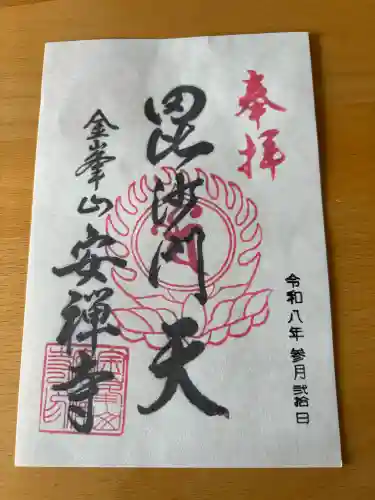 奉拝
令和八年 参月 弐拾日
毘沙門天
金峯山
安禅寺